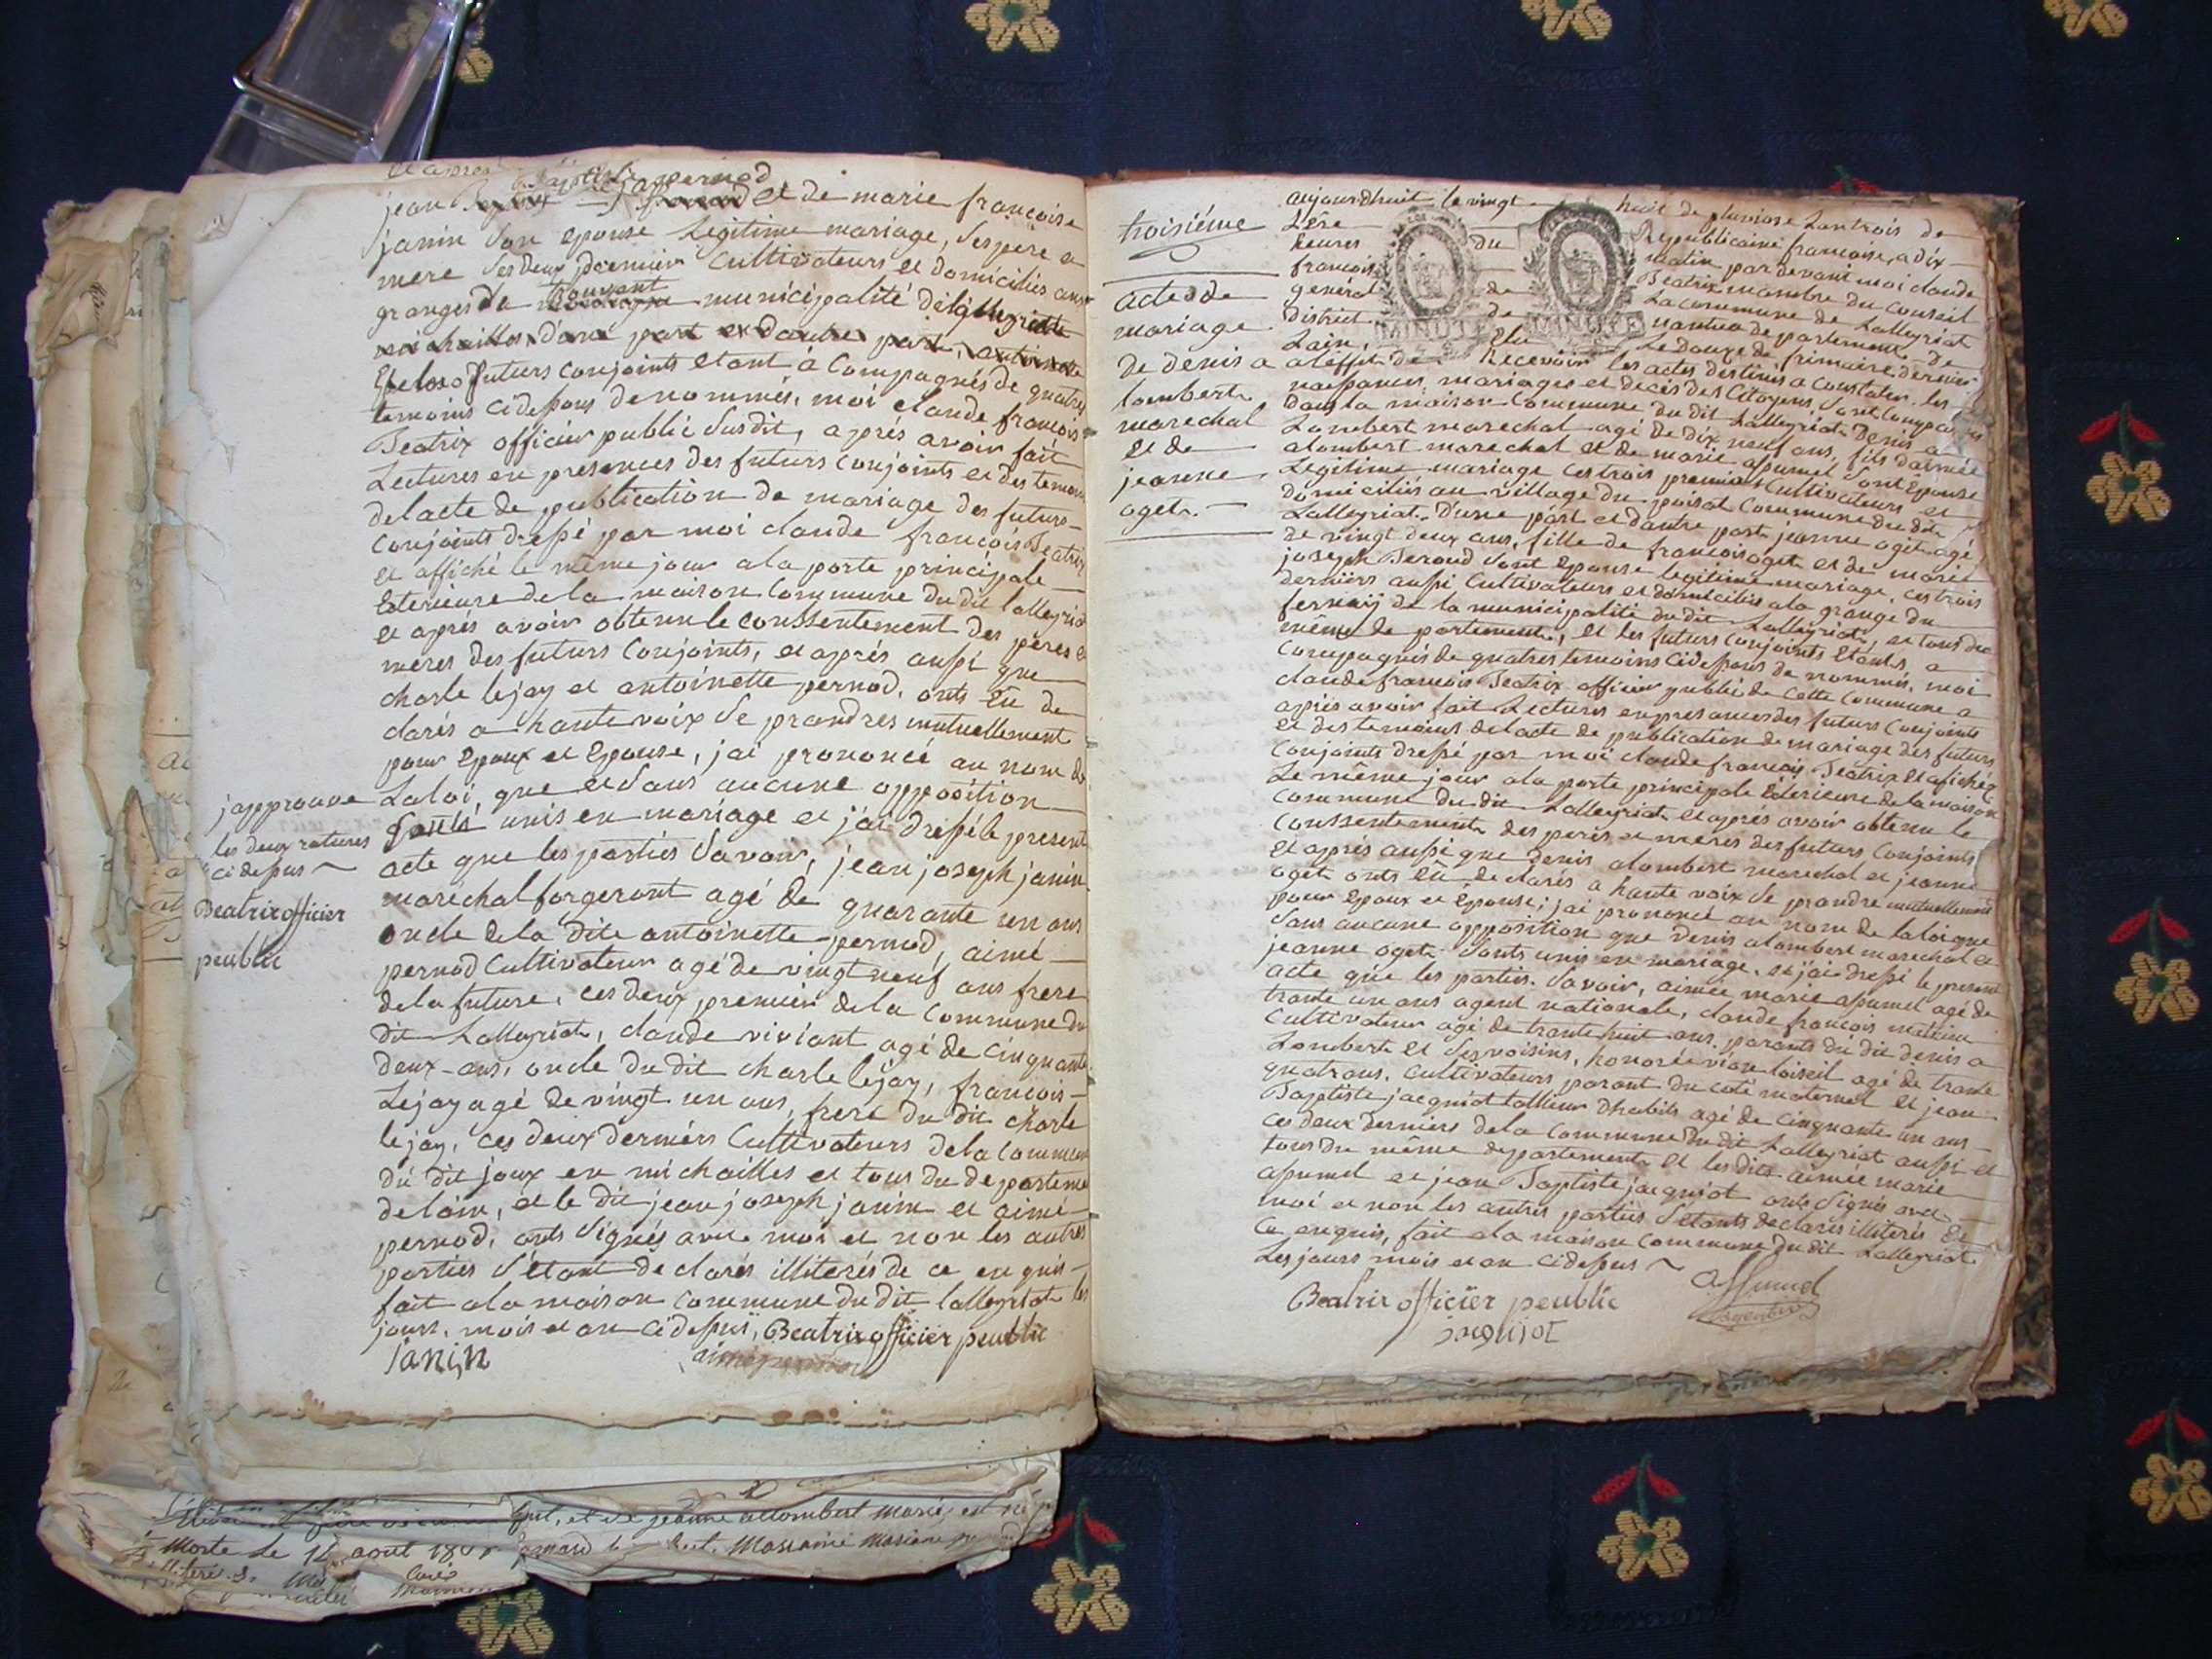 jean Baptiste pernod et de marie francoise
janin Son epouse Legitime mariage, Ses pere et
mere Ses deux dernier Cultivateurs et domiciliés aux
granges du municipalité de
Et les futurs conjoints etant à Compagnés de quatres
temoins cidessous denommés, moi claude francois
Beatrix officier public Susdit, aprés avoir fait
Lectures en presences des futurs conjoints et des temoins
de lacte de publication de mariage des futurs
conjoints dressé par moi claude francois Beatrix
et affiché le même jour a la porte principale
Exterieure de la maison Commune du dit lalleyriat
et aprés avoir obtenu le conssentement des péres et
méres des futurs Conjoints, et aprés aussi que
charle lejay et antoinette pernod, onts Eu de
clarés a haute voix Se prandres mutuellement
pour Epoux et Epouse, jai prononcé au nom de
La loi, que et Sans aucune opposition
Sonts unis en mariage et jai dressé le present
acte que les parties Savoir, jean joseph janin
maréchal forgeront agé de quarante un ans
oncle de la dite antoinette pernod, aimé
pernod Cultivateur agé de vingt neuf ans frere
de la future, ces deux premier de la Commune du
dit Lalleyriat, claude viviant agé de cinquante
deux ans, oncle du dit charle lejay, francois
Lejay agé de vingt un ans, frere du dit charle
lejay, ces deux derniérs Cultivateurs de la commune
du dit joux en michailles et tous du departeme
de lain, et le dit jean joseph janin et aimé
pernod, onts Signés avec moi et non les autres
parties S'étant declarés illiterés de ce enquis
fait a la maison commune du dit lalleyriat les
jours, mois et an cidessus, Beatrix officier peublic
janin
aimé pernod
japprouve
les deux ratures
cidessus
Beatrix officier
peublic
troisiéme
acte de
mariage
de denis a
lombert
marechal
et de
jeanne
oget
aujourdhuit le vingt huit de pluviose Lantrois de
Lére du Republicaine francoise, a dix
heures matin par devant moi claude
francois Beatrix membre du Conseil
general de La commune de Lalleyriat
District de nantua departement de
Lain, Elu Le douze de frimaire dernier
a leffet de Recevoir les actes destinés a Constater les
naissances, mariages et decés des Citoyens, Sont comparus
Dans la maison Commune du dit Lalleyriat Denis a
Lombert marechal agé de dix neuf ans, fils daimé
alombert marechal et de marie assumel Sont Epouse
Legitime mariage ces trois premiers Cultivateurs et
domiciliés au village du poisat Commune du dit
Lalleyriat, Dune part et dautre part jeanne oget agé
de vingt deux ans, fille de francois oget et de marie
joseph Beroud Sont Epouse legitime mariage, ces trois
derniérs aussi Cultivateurs et domiciliés a la grange du
fernaij de la municipalité du dit Lalleyriat, et tous du
même departement, et les futurs conjoints Etants a
Compagnés de quatres temoins cidessous denommés, moi
claude francois Beatrix officier public de cette Commune a
aprés avoir fait Lectures en presances des futurs Conjoints
et des temoins de lacte de publication de mariage des futurs
Conjoints dressé par moi claude francois Beatrix et affichéz
Le même jour a la porte principale Exterieure de la maison
commune du dit Lalleyriat et aprés avoir obtenu le
Conssentement des perés et méres des futurs Conjoints
et aprés aussi que Denis alombert marechal et jeanne
oget onts Eu declarés a haute voix Se prandre mutuellement
pour Epoux et Epouse; jai prononcé au nom de la loi que
Sans aucune opposition que denis alombert marechal et
jeanne oget Sonts unis en mariage, et jai dressé le present
acte que les parties Savoir, aimée marie assumel agé de
trante un ans agent nationale, claude francois
Cultivateur agé de trante huit ans, parants du dit denis a
Lombert et Ses voisins, honorée loiseil agé de trante
quatrans, Cultivateurs parant du coté maternel et jean
Baptiste jacquiot tallieur Dhabits agé de cinquante un ans
ces deux derniers de la commune du dit Lalleyriat aussi et
tous du même departement et les dits aimée marie
assumel et jean Baptiste jacquiot onts Signés avec
moi et non les autres parties S'etants declarés illiterés De
Ce enquis, fait a la maison commune du dit Lalleyriat
Les jours mois et an cidessus
Assumel
Beatrix officier peublic
jaquiot
MINUTE MINUTE
et de jeanne allombert mariés, est né
Morte Le 12 aout